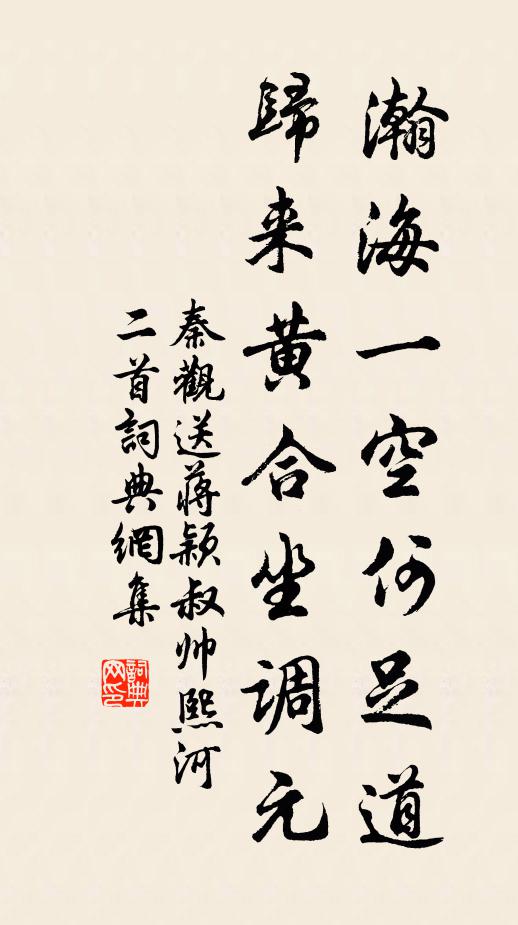 瀚海一空何足道
歸来黄合坐調元
秦觀送蔣穎叔帅熙河
二首詞典網集
詞典
网印